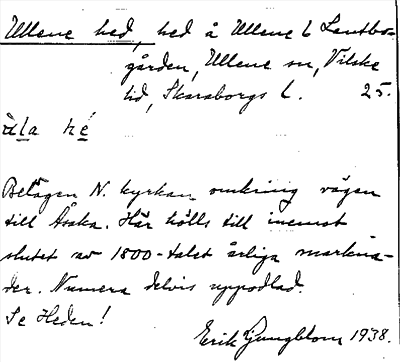 Ullene hed, hed å Ullene L Lantbo-
gården, Ullene sn, Vilske
hd, Skaraborgs l. 25.
ùla hé
Belägen N. kyrkan omkring vägen
till Åsaka. Här hölls till inemot
slutet av 1800-talet årliga markna-
der. Numera delvis uppodlad.
Se Heden!
Erik Ljungblom 1938.